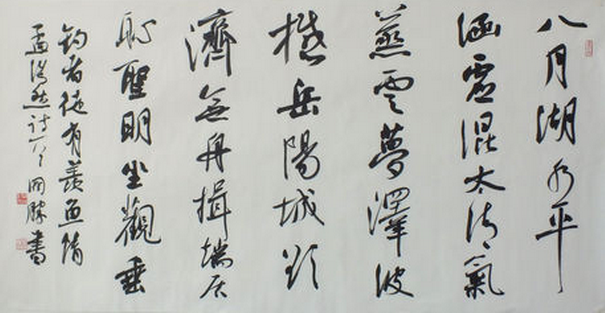 八月湖水平
涵虛混太清氣
蒸雲夢澤波
撼岳陽城欲
濟無舟楫端居
恥聖明坐觀垂
釣者徒有羨魚情
孟浩然詩一首 書